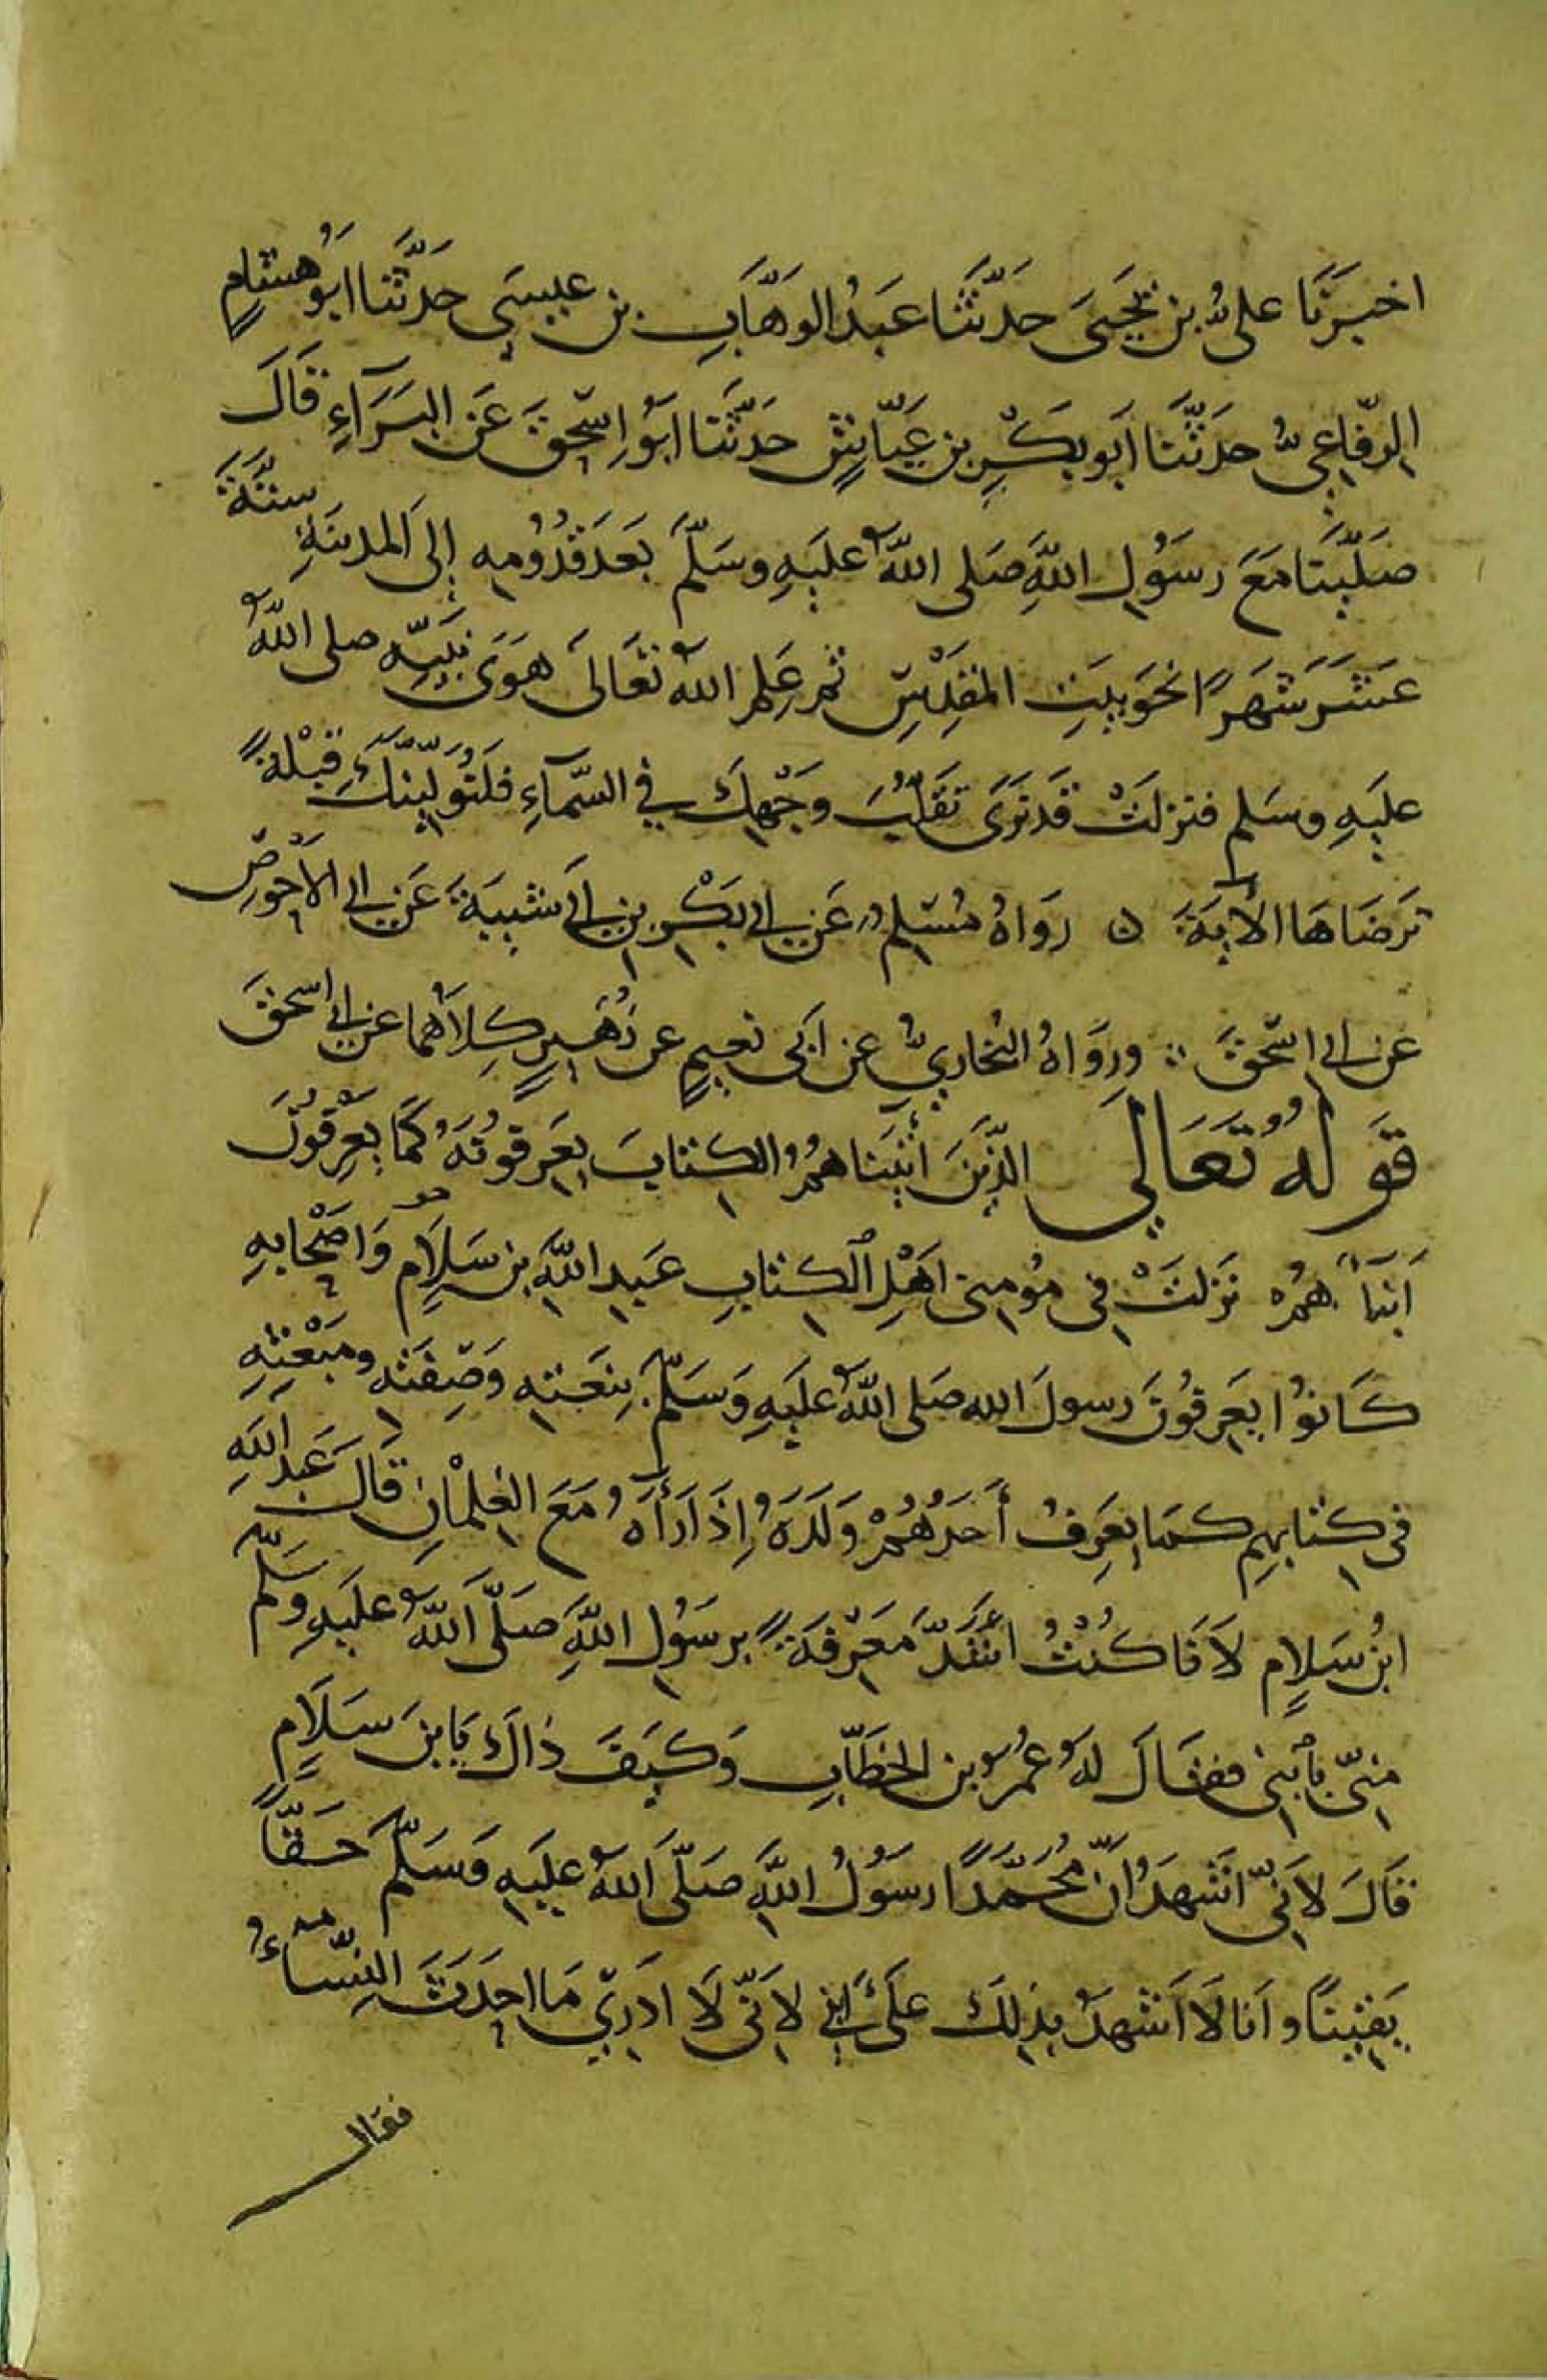 اخبرنا علي بن يحيى حدثنا عبد الوهاب بن عيسى حدثنا ابو هشام
الرفاعي حدثنا ابو بكر بن عياش حدثنا ابو اسحق عن البراء قال
صلينا مع رسول الله صلى الله عليه وسلم بعد قدومه إلى المدينة ستة
عشر شهرا نحو بيت المقدس ثم علم الله تعالى هوى نبيه صلى الله
عليه وسلم فنزلت قد نرى تقلب وجهك في السماء فلنولينك قبلة
ترضاها الآية ه رواه مسلم عن ابي بكر بن ابي شيبة عن ابي الأحوص
عن ابي اسحق ورواه البخاري عن ابي نعيم عن زهير كلاهما عن ابي اسحق
قوله تعالى الذين أتيناهم الكتاب يعرفونه كما يعرفون
ابناهم ه نزلت في مؤمني اهل الكتاب عبد الله بن سلام واصحابه
كانوا يعرفون رسول الله صلى الله عليه وسلم بنعته وصفته ومبعثه
في كتابهم كما يعرف أحدهم ولده إذا رأه مع الغلمان قال عبد الله
ابن سلام لانا كنت اشد معرفة برسول الله صلى الله عليه وسلم
مني بابني فقال له عمر بن الخطاب وكيف ذاك يابن سلام
قال لاني اشهد ان محمدا رسول الله صلى الله عليه وسلم حقا
يقينا وانا لا اشهد بذلك على ابني لاني لا ادري ما احدث النساء
فقال